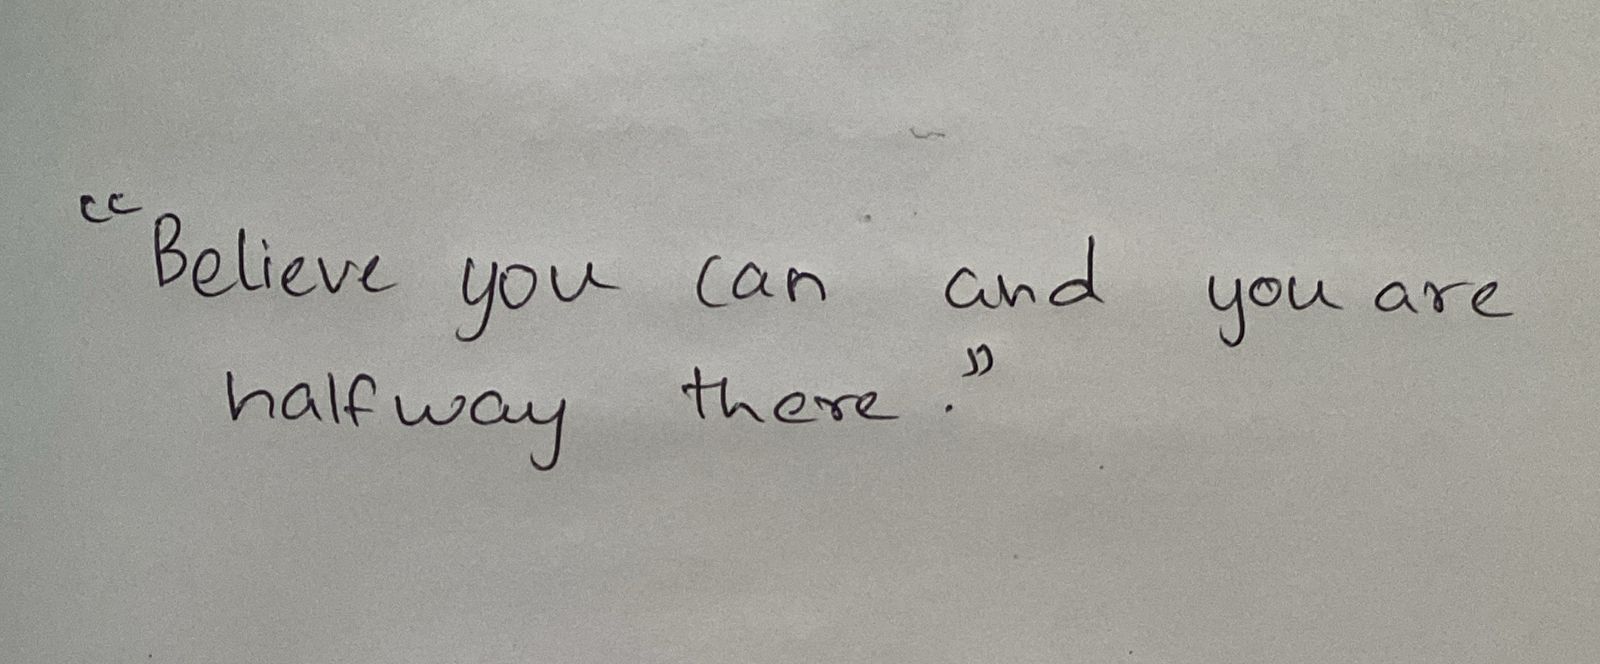 “Believe you can and you are
halfway there.”